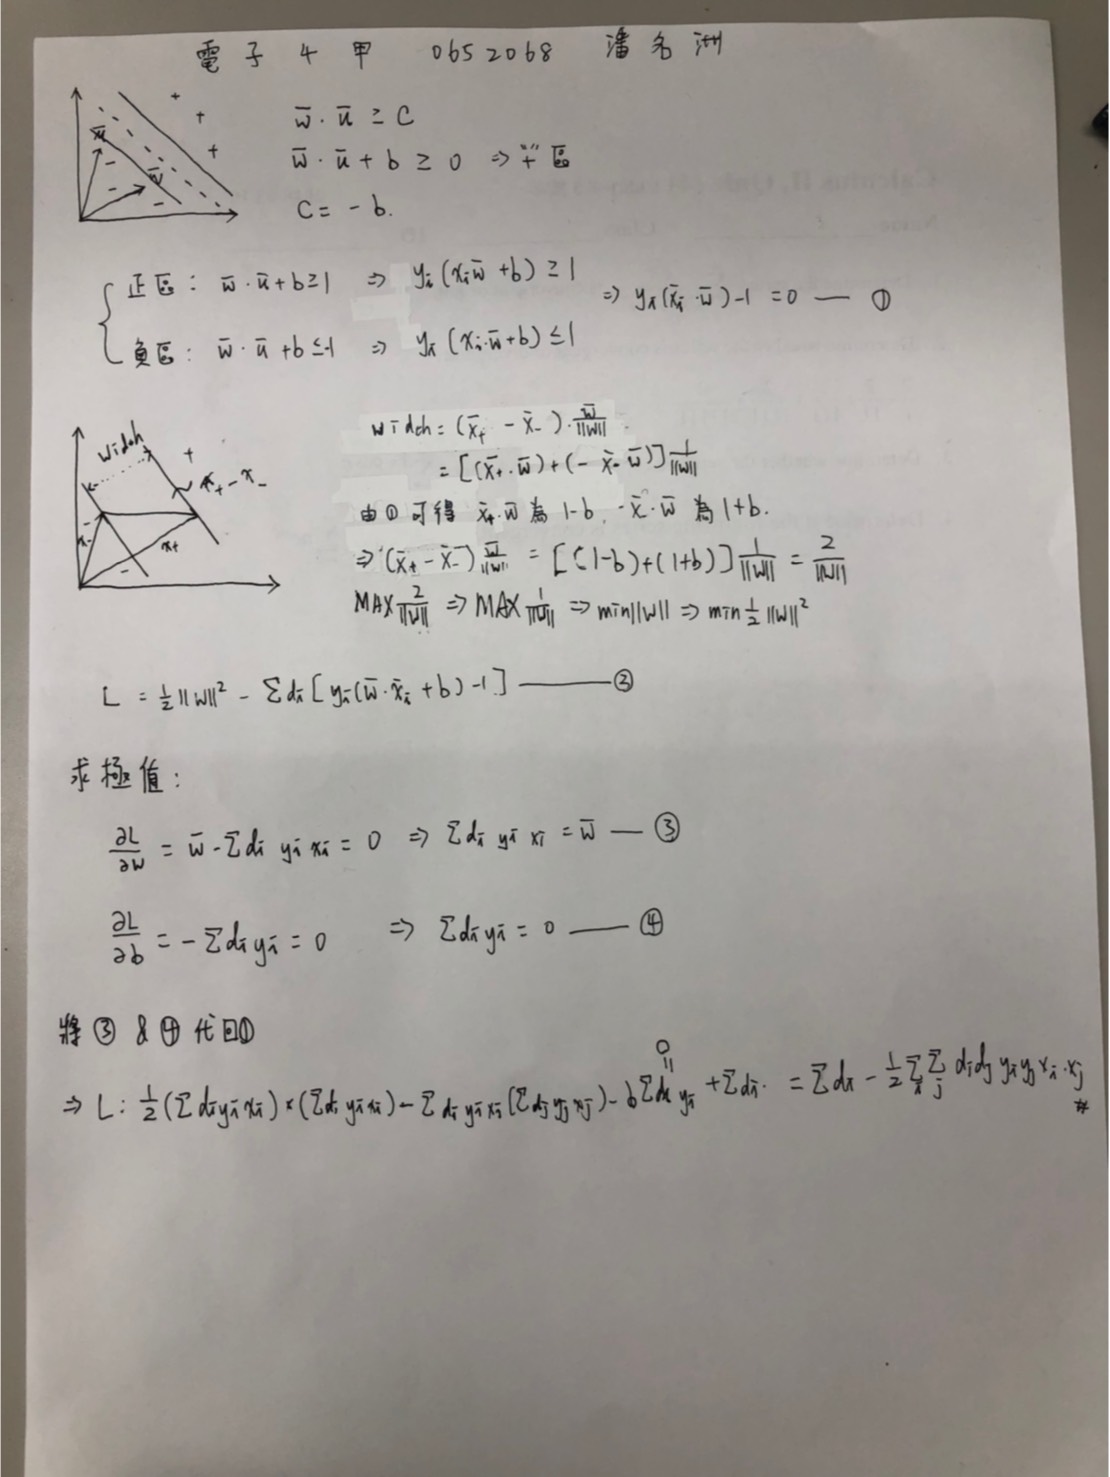 電子4甲 0652068 潘名洲
w̄·ū ≥ C
w̄·ū + b ≥ 0 ⇒ "+" 區
C = -b.
ū
w̄
正區: w̄·ū+b≥1 ⇒ yi(xi w̄ +b) ≥ 1
⇒ yi(x̄i·w̄)-1 = 0 — ①
負區: w̄·ū+b≤-1 ⇒ yi(xi·w̄+b) ≤ 1
width
x+ - x-
x-
x+
width = (x̄+ - x̄-)·w̄/||w||.
= [(x̄+·w̄)+(-x̄-·w̄)] 1/||w||
由①可得 x̄+·w̄ 為 1-b, -x̄·w̄ 為 1+b.
⇒ (x̄+ - x̄-) w̄/||w|| = [(1-b)+(1+b)] 1/||w|| = 2/||w||
MAX 2/||w|| ⇒ MAX 1/||w|| ⇒ min||w|| ⇒ min ½||w||²
L = ½||w||² - Σdi[yi(w̄·x̄i+b)-1] — ②
求極值:
∂L/∂w = w̄ - Σdi yi xi = 0 ⇒ Σdi yi xi = w̄ — ③
∂L/∂b = -Σdi yi = 0 ⇒ Σdi yi = 0 — ④
將③ & ④代回①
⇒ L: ½(Σdi yi xi)×(Σdi yi xi) - Σdi yi xi(Σdj yj xj) - bΣdi yi + Σdi. = Σdi - ½ΣiΣj didj yiyj xi·xj
0